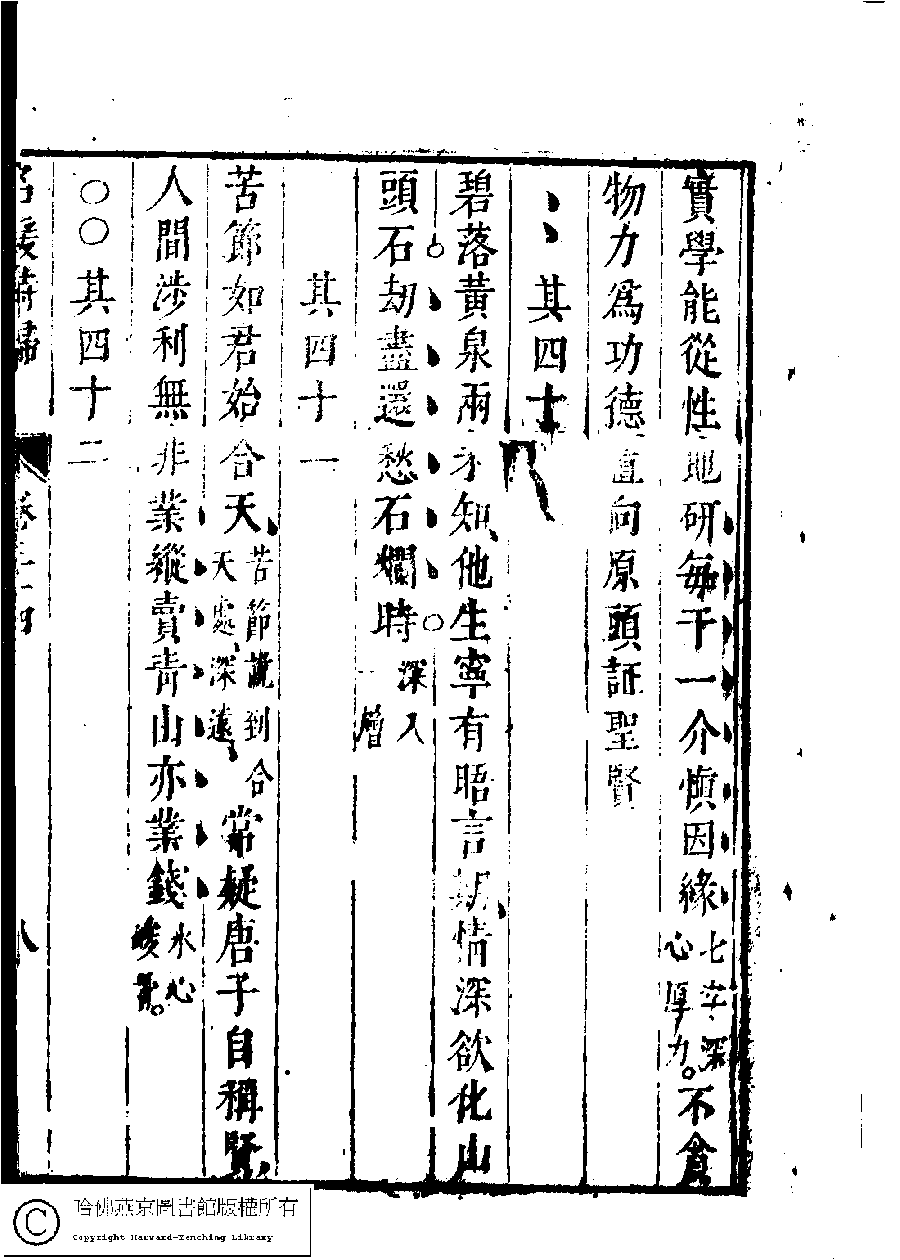 實學能從性地研每于一介慎因緣七字深心厚力不貪
物力爲功德直向原頭証聖賢
其四十
碧落黃泉兩未知他生寧有晤言期情深欲化山
頭石劫盡還愁石爛時深入一層
其四十一
苦節如君始合天苦節說到合天處深遠常疑唐子自稱賢
人間涉利無非業縱賣青山亦業錢冰心峻骨
○○其四十二
名媛詩歸 卷三十四 八
哈佛燕京圖書館版權所有
Copyright Harvard-Yenching Library